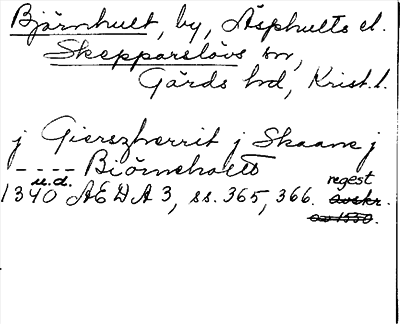 Björnhult, by, Äsphults el.
Skepparslövs sn,
Gärds hd, Krist. l.
j Gierszherrit j Skaane j
---- Biörneholtt
u.d. regest
1340 AEDA 3, ss. 365, 366. avskr.
av 1550.